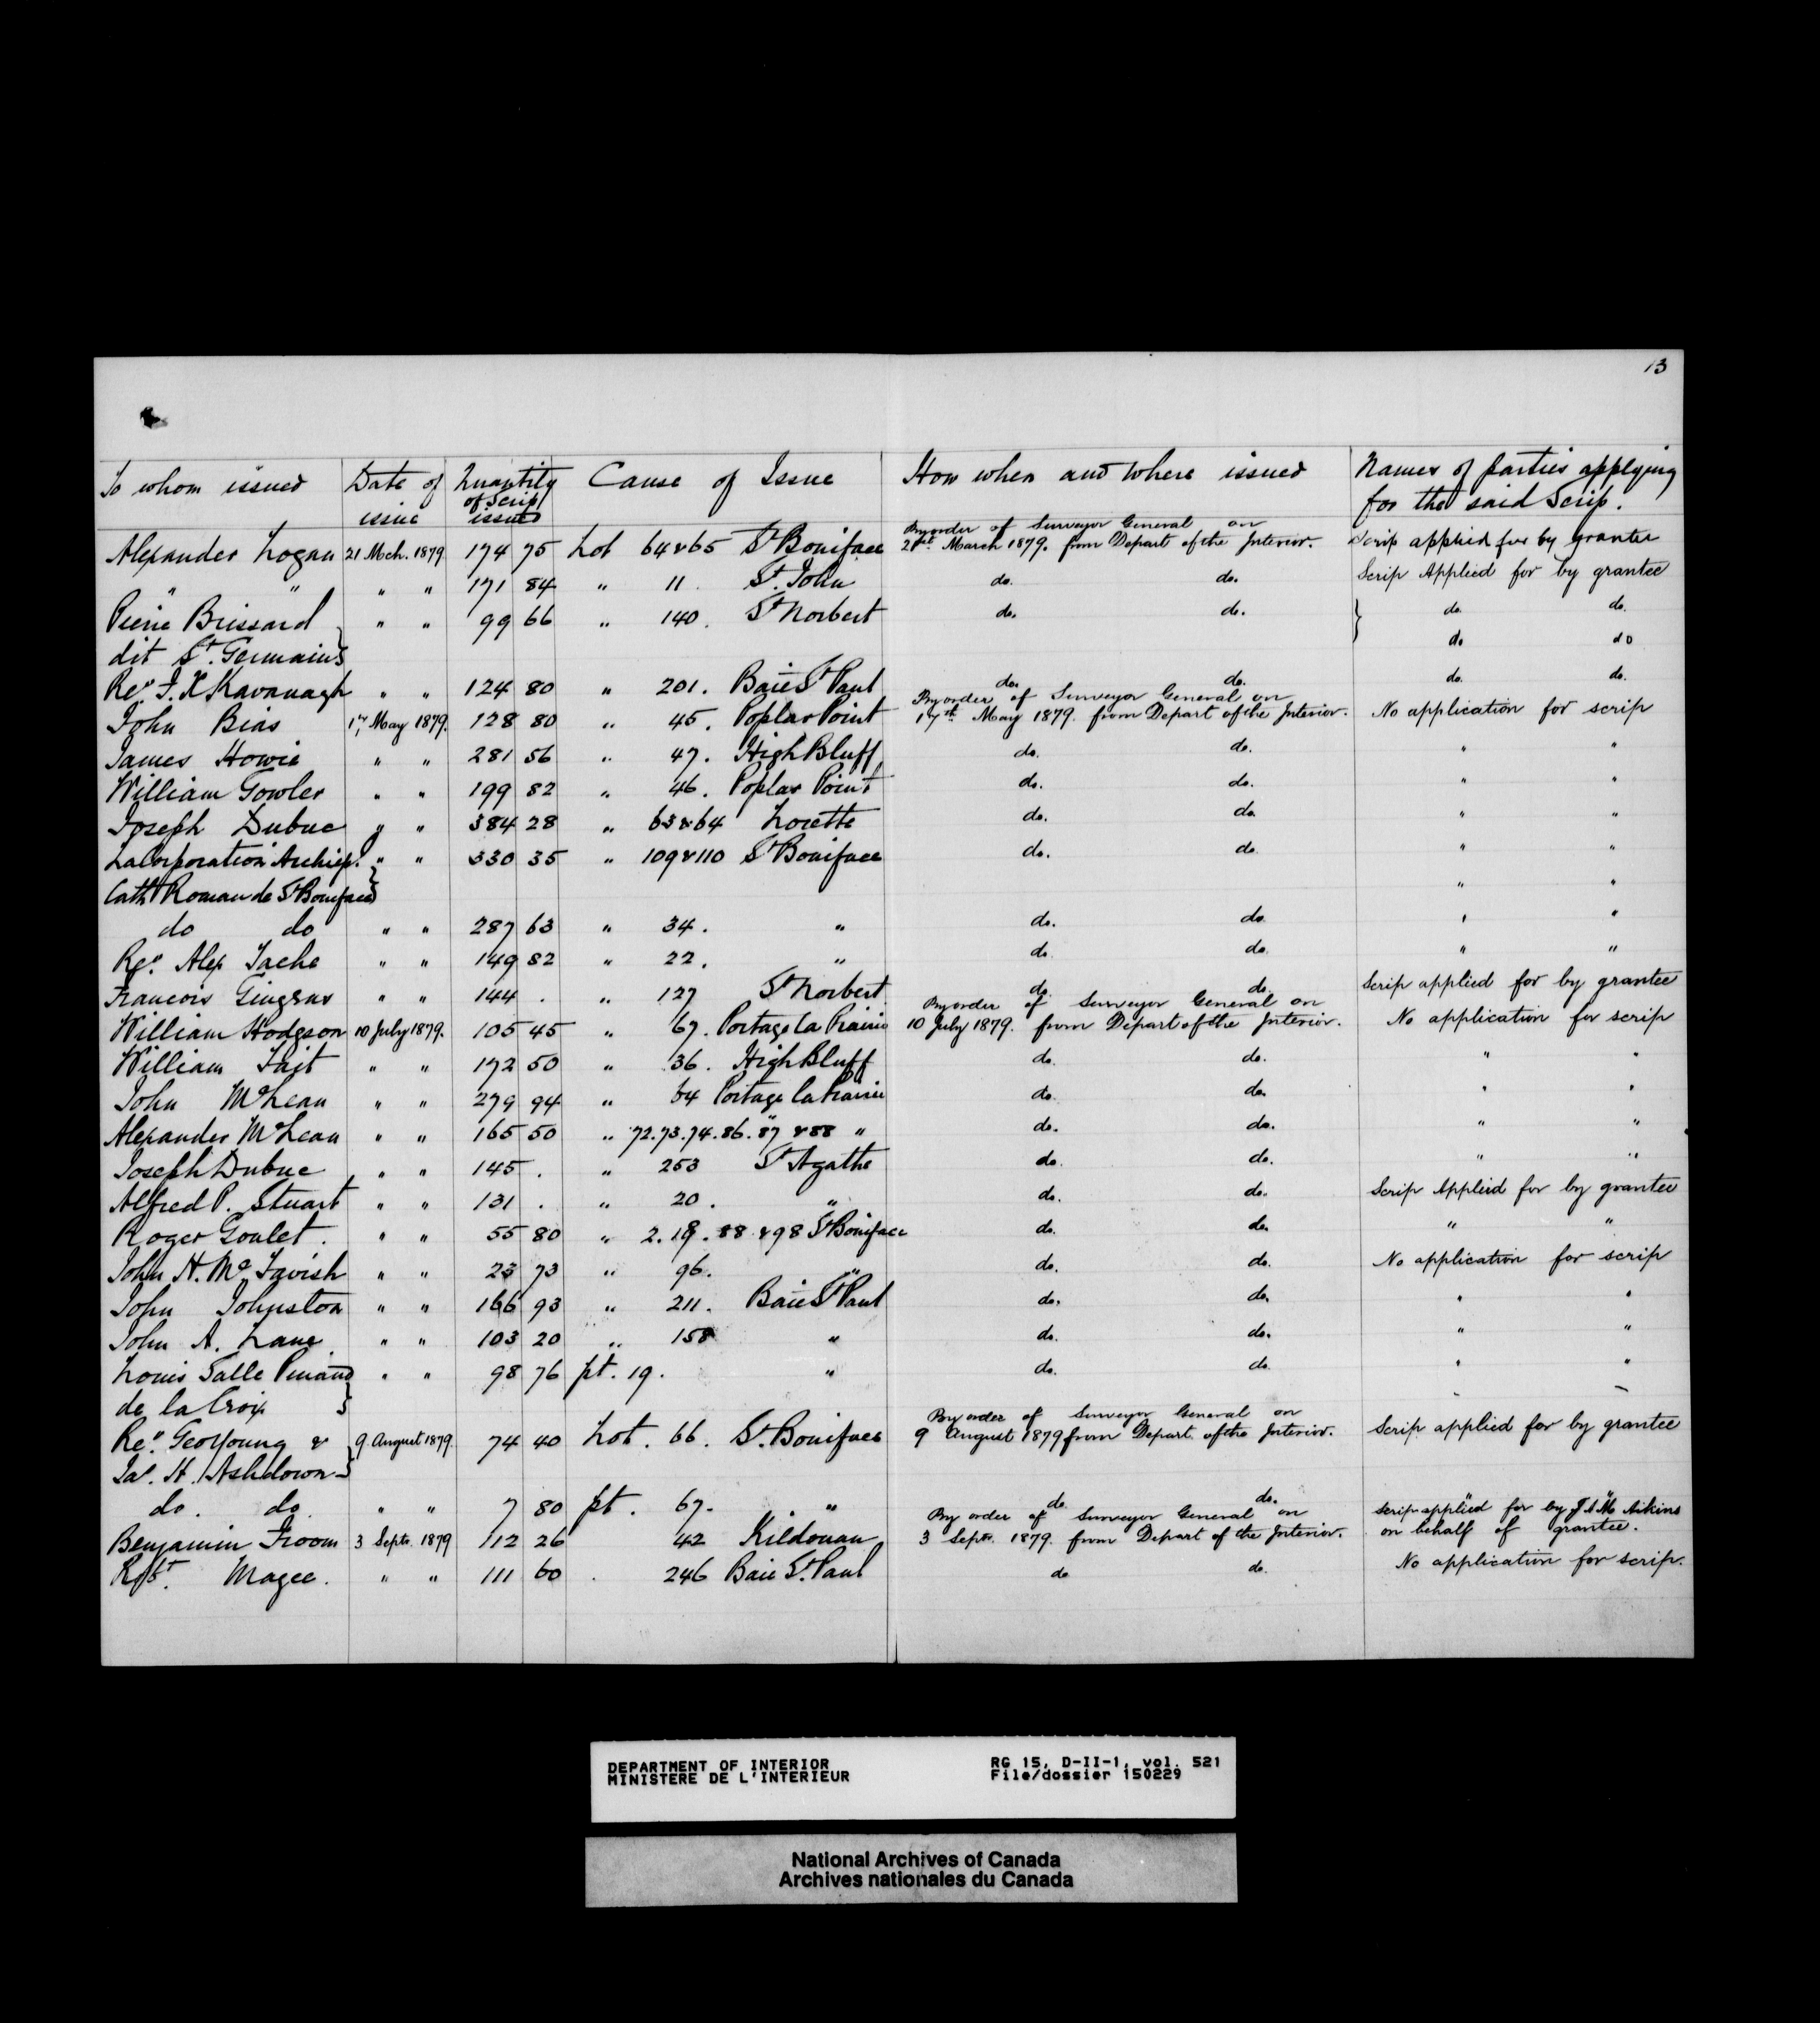 13
To whom issued Date of issue Quantity of Scrip issued Cause of Issue How when and where issued Names of parties applying for the said Scrip.
Alexander Logan 21 Mch. 1879 174 75 Lot 64 & 65 St Boniface By order of Surveyor General on 21st March 1879. from Depart of the Interior. Scrip applied for by grantee
" " " " 171 84 " 11 St. John do. do. Scrip Applied for by grantee
Pierre Brissard } " " 99 66 " 140. St Norbert do. do. } do. do.
dit St. Germains do do
Revd. F. X Kavanagh " " 124 80 " 201. Baie St Paul do. do. do. do.
John Bias 17 May 1879. 128 80 " 45. Poplar Point By order of Surveyor General on 17th May 1879. from Depart of the Interior. No application for scrip
James Howie " " 281 56 " 47. High Bluff do. do. " "
William Gowler " " 199 82 " 46. Poplar Point do. do. " "
Joseph Dubuc " " 384 28 " 63 & 64 Lorette do. do. " "
La Corporation Archiep. } " " 330 35 " 109 & 110 St Boniface do. do. " "
Cath Roman de St Boniface " "
do do " " 287 63 " 34. " do. do " "
Revd. Alex Tache " " 149 82 " 22. " do. do. " "
Francois Gingras " " 144 . " 127 St Norbert do. do. Scrip applied for by grantee
William Hodgson 10 July 1879. 105 45 " 67. Portage la Prairie By order of Surveyor General on 10 July 1879. from Depart of the Interior. No application for scrip
William Tait " " 172 50 " 36. High Bluff do. do. " "
John McLean " " 279 94 " 64 Portage la Prairie do. do. " "
Alexander McLean " " 165 50 " 72. 73. 74. 86. 87 & 88 " " do. do. " "
Joseph Dubuc " " 145 . " 253 St Agathe do. do. " "
Alfred P. Stuart " " 131 . " 20. " do. do. Scrip Applied for by grantee
Roger Goulet. " " 55 80 " 2. 19. 88 & 98 St Boniface do. do. " "
John H. McTavish " " 23 73 " 96. " do. do. No application for scrip
John Johnston " " 166 93 " 211. Baie St Paul do. do. " "
John A. Lane " " 103 20 " 158 " do. do. " "
Louis Salle Pinaud } " " 98 76 pt. 19. " do. do. " "
de la Croix
Revd. Geo Young & } 9. August 1879. 74 40 Lot. 66. St. Boniface By order of Surveyor General on 9 August 1879 from Depart of the Interior. Scrip applied for by grantee
Jas. H. Ashdown
do. do. " " 7 80 pt. 67. " do. do. " "
Benjamin Froom 3 Septr. 1879 112 26 42 Kildonan By order of Surveyor General on 3 Septr. 1879. from Depart of the Interior. scrip applied for by J A M Aikins on behalf of grantee.
Robt. Magee. " " 111 60 . 246 Baie St. Paul do do. No application for scrip.
DEPARTMENT OF INTERIOR RG 15, D-II-1, vol. 521
MINISTERE DE L'INTERIEUR File/dossier 150229
National Archives of Canada
Archives nationales du Canada